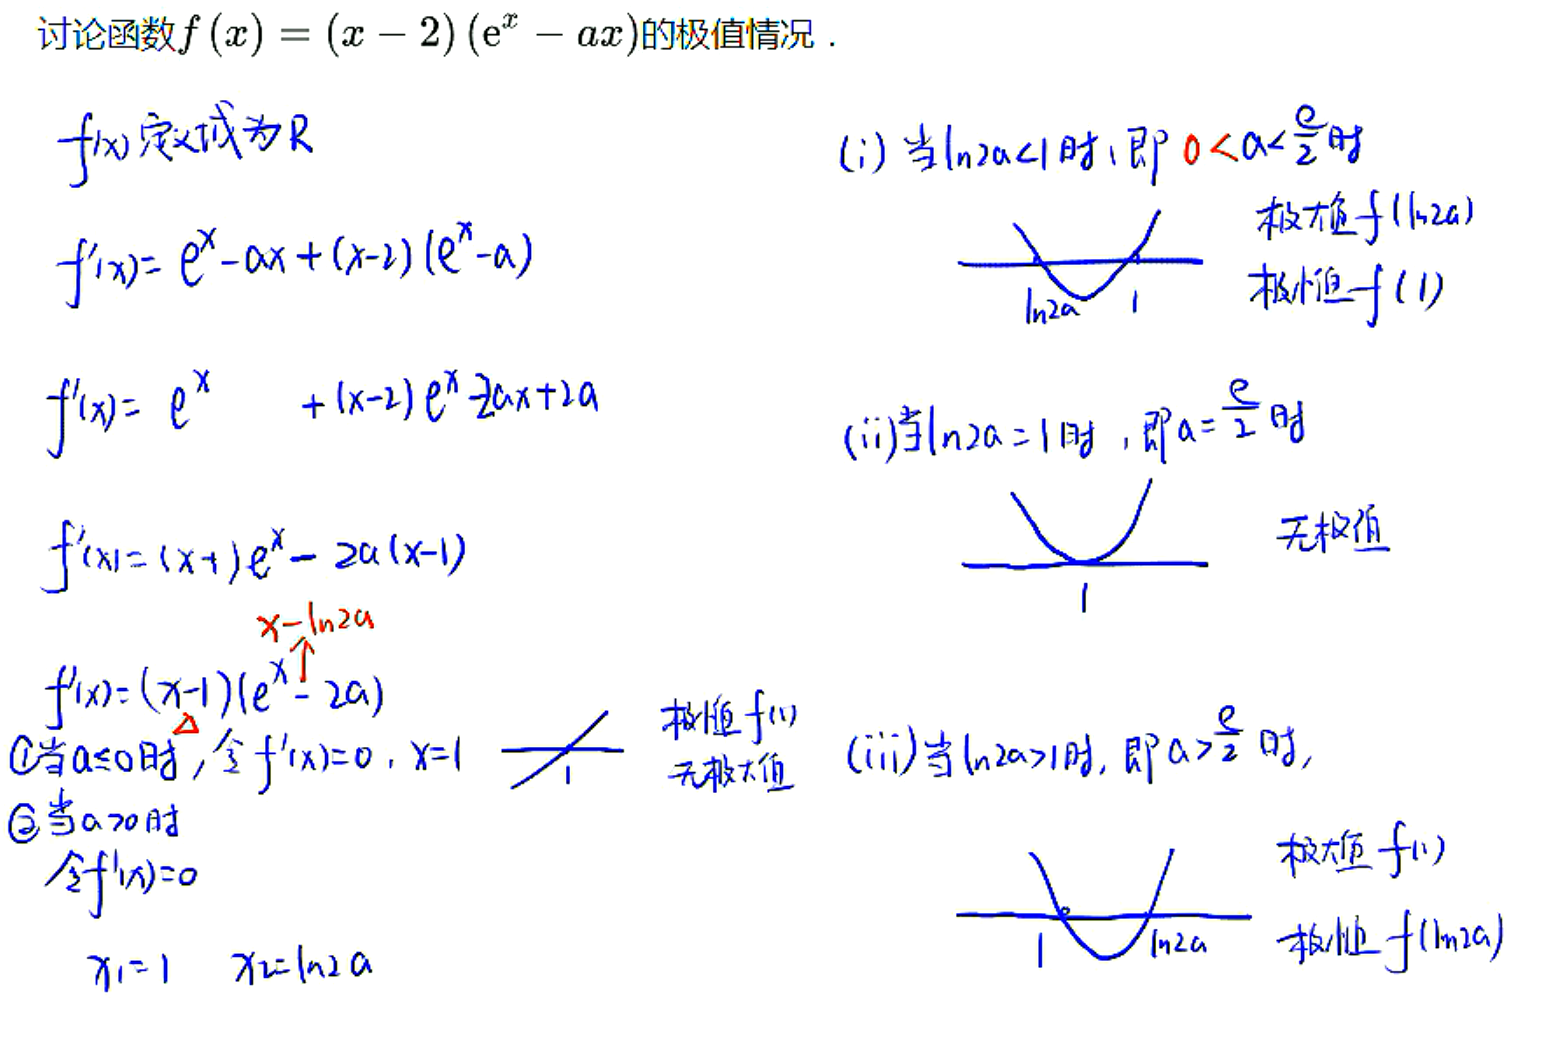 讨论函数f(x)=(x-2)(e^x-ax)的极值情况.
f(x)定义域为R
f'(x)=e^x-ax+(x-2)(e^x-a)
f'(x)=e^x +(x-2)e^x-2ax+2a
f'(x)=(x-1)e^x-2a(x-1)
x-ln2a
f'(x)=(x-1)(e^x-2a)
①当a≤0时,令f'(x)=0,x=1
1
极小值f(1)
无极大值
②当a>0时
令f'(x)=0
x₁=1 x₂=ln2a
(i)当ln2a<1时,即0<a<e/2时
ln2a 1
极大值f(ln2a)
极小值f(1)
(ii)当ln2a=1时,即a=e/2时
1
无极值
(iii)当ln2a>1时,即a>e/2时,
1 ln2a
极大值f(1)
极小值f(ln2a)